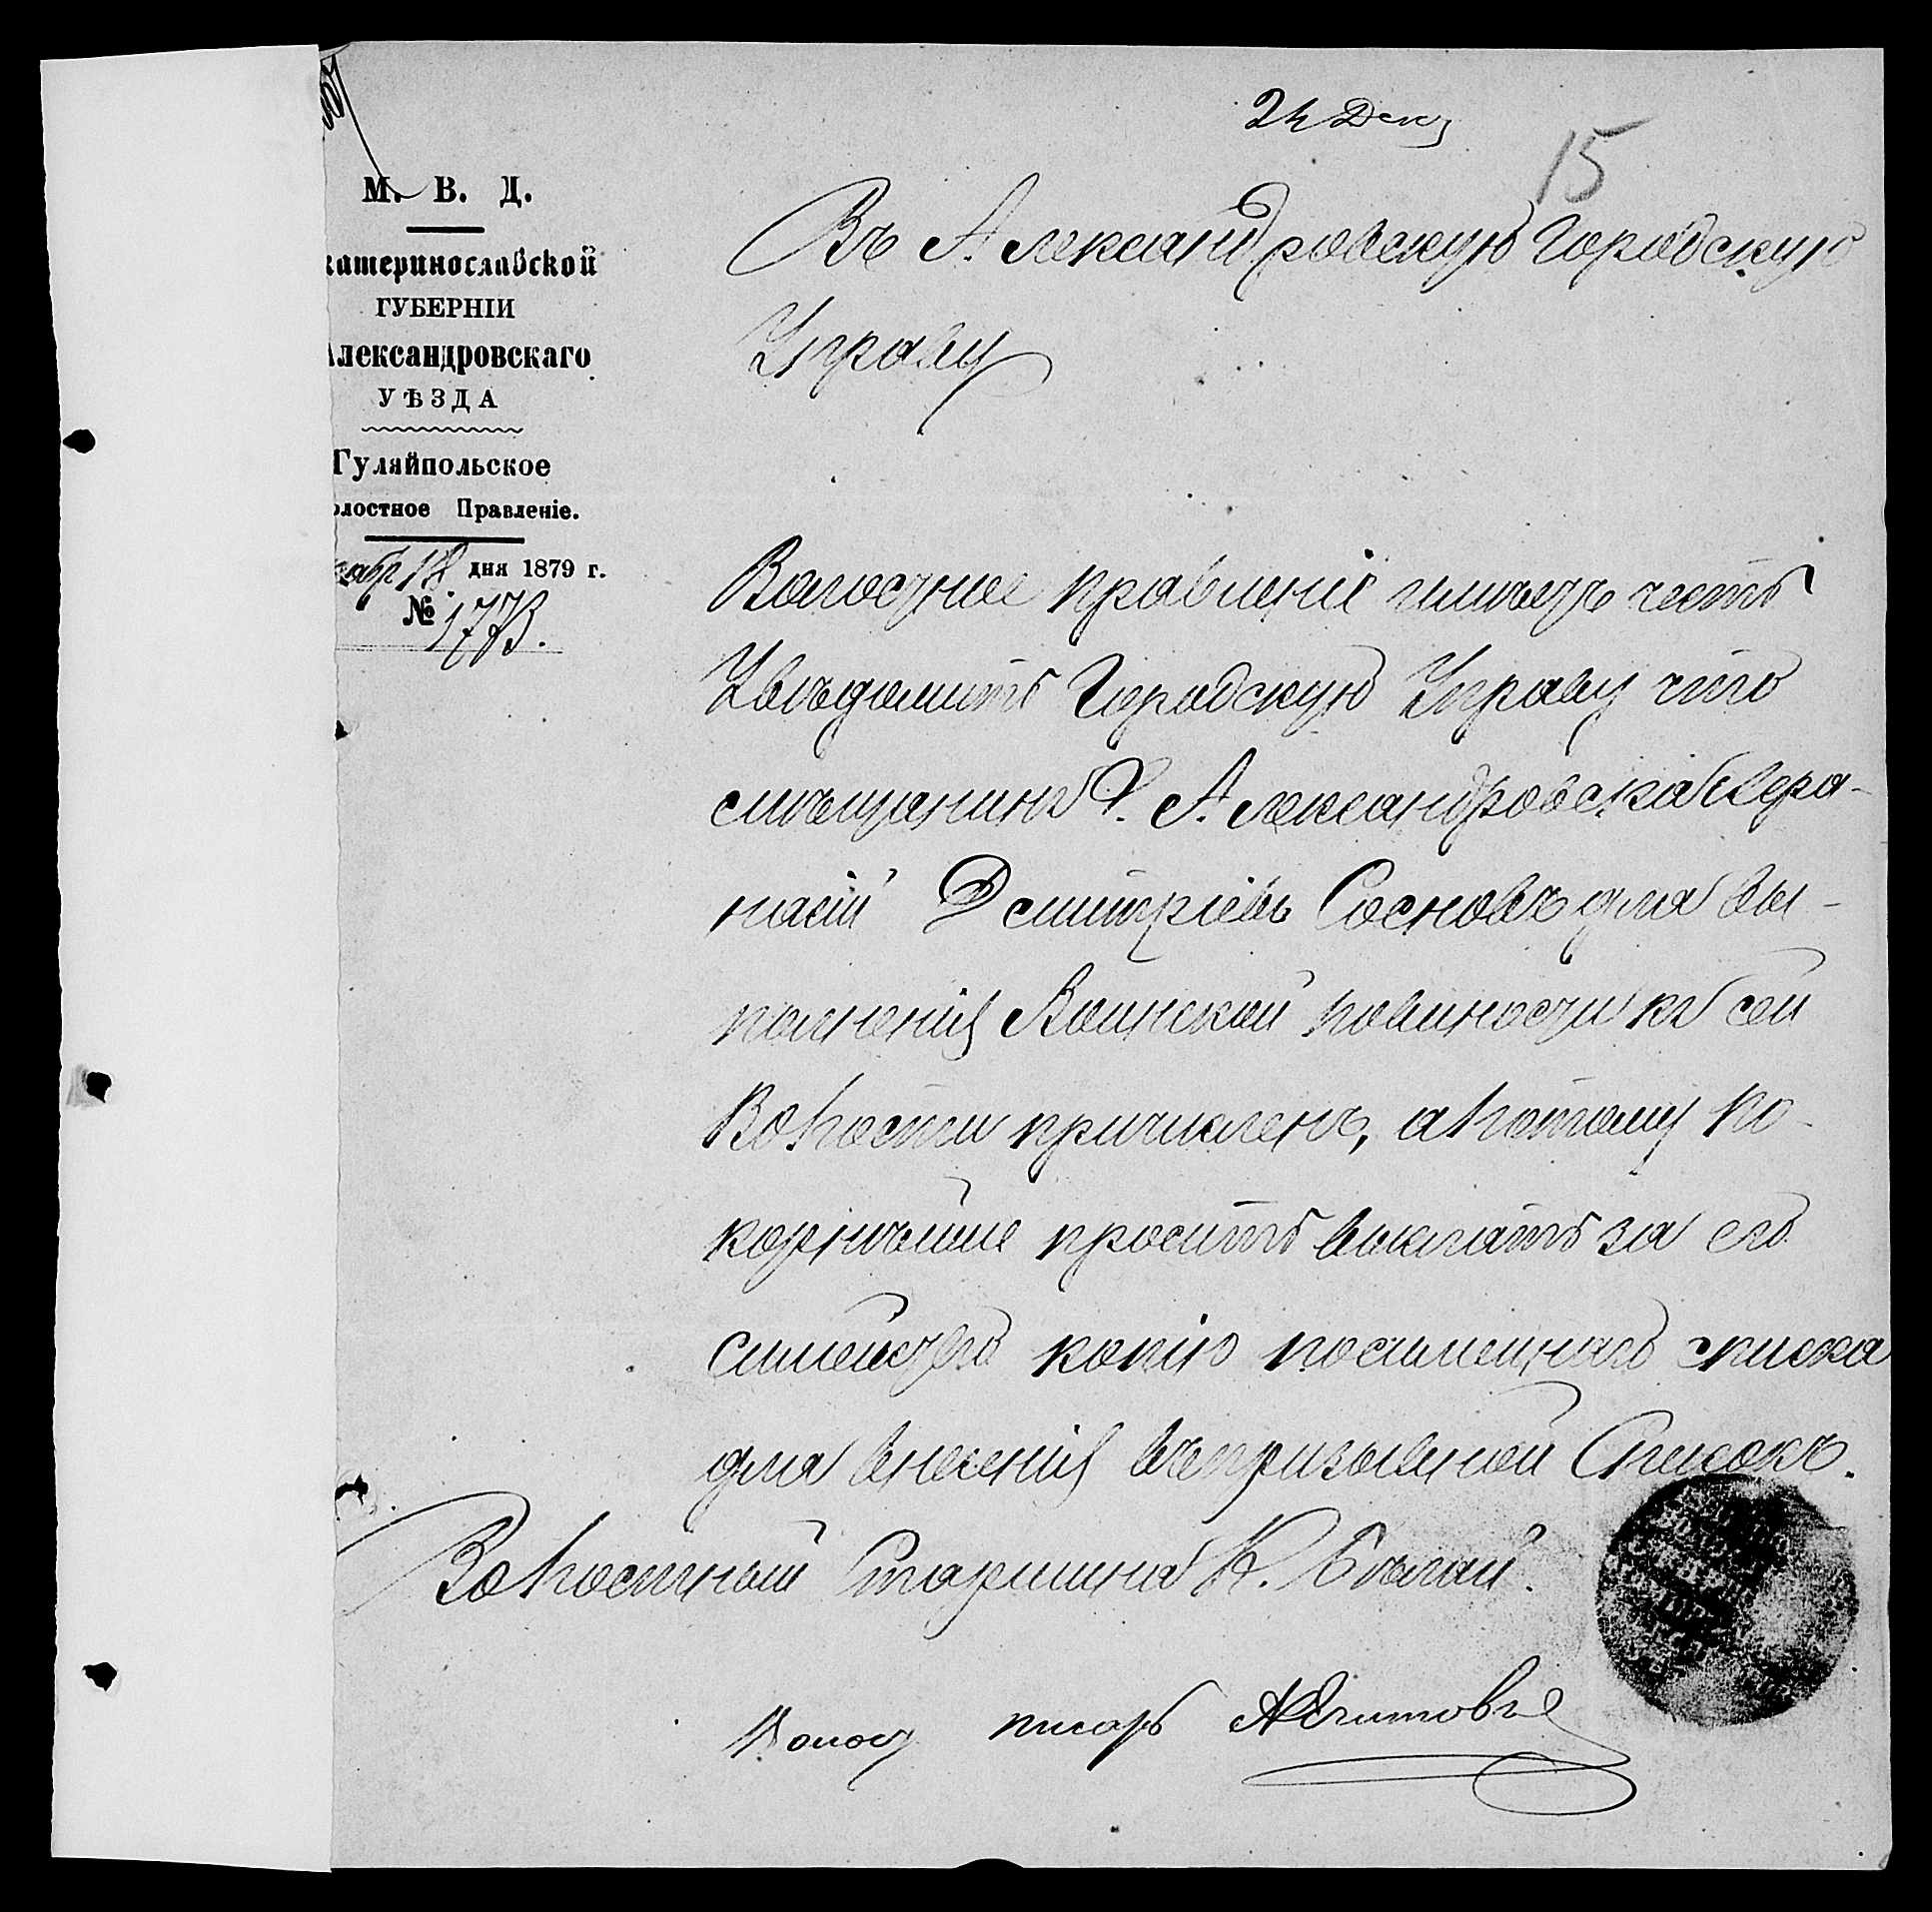 24 Дек
15
М. В. Д.
катеринославской
ГУБЕРНІИ
Александровскаго
УѢЗДА
Гуляйпольское
олостное Правленіе.
кабр 18 дня 1879 г.
№ 1773.
Въ Александровскую Городскую
Управу
Волостное правленіе имѣетъ честь
Увѣдомить Городскую Управу что
мѣщанинъ Г. Александровска
Дмитріевъ Сосновъ для вы-
полненія Воинской повиности къ сей
Волости причисленъ, а потому по-
корнѣйше проситъ выслать за его
симейство копію посимейнаго списка
для внесенія въ призывной Списокъ.
Волостный Старшина К.
Волост писарь